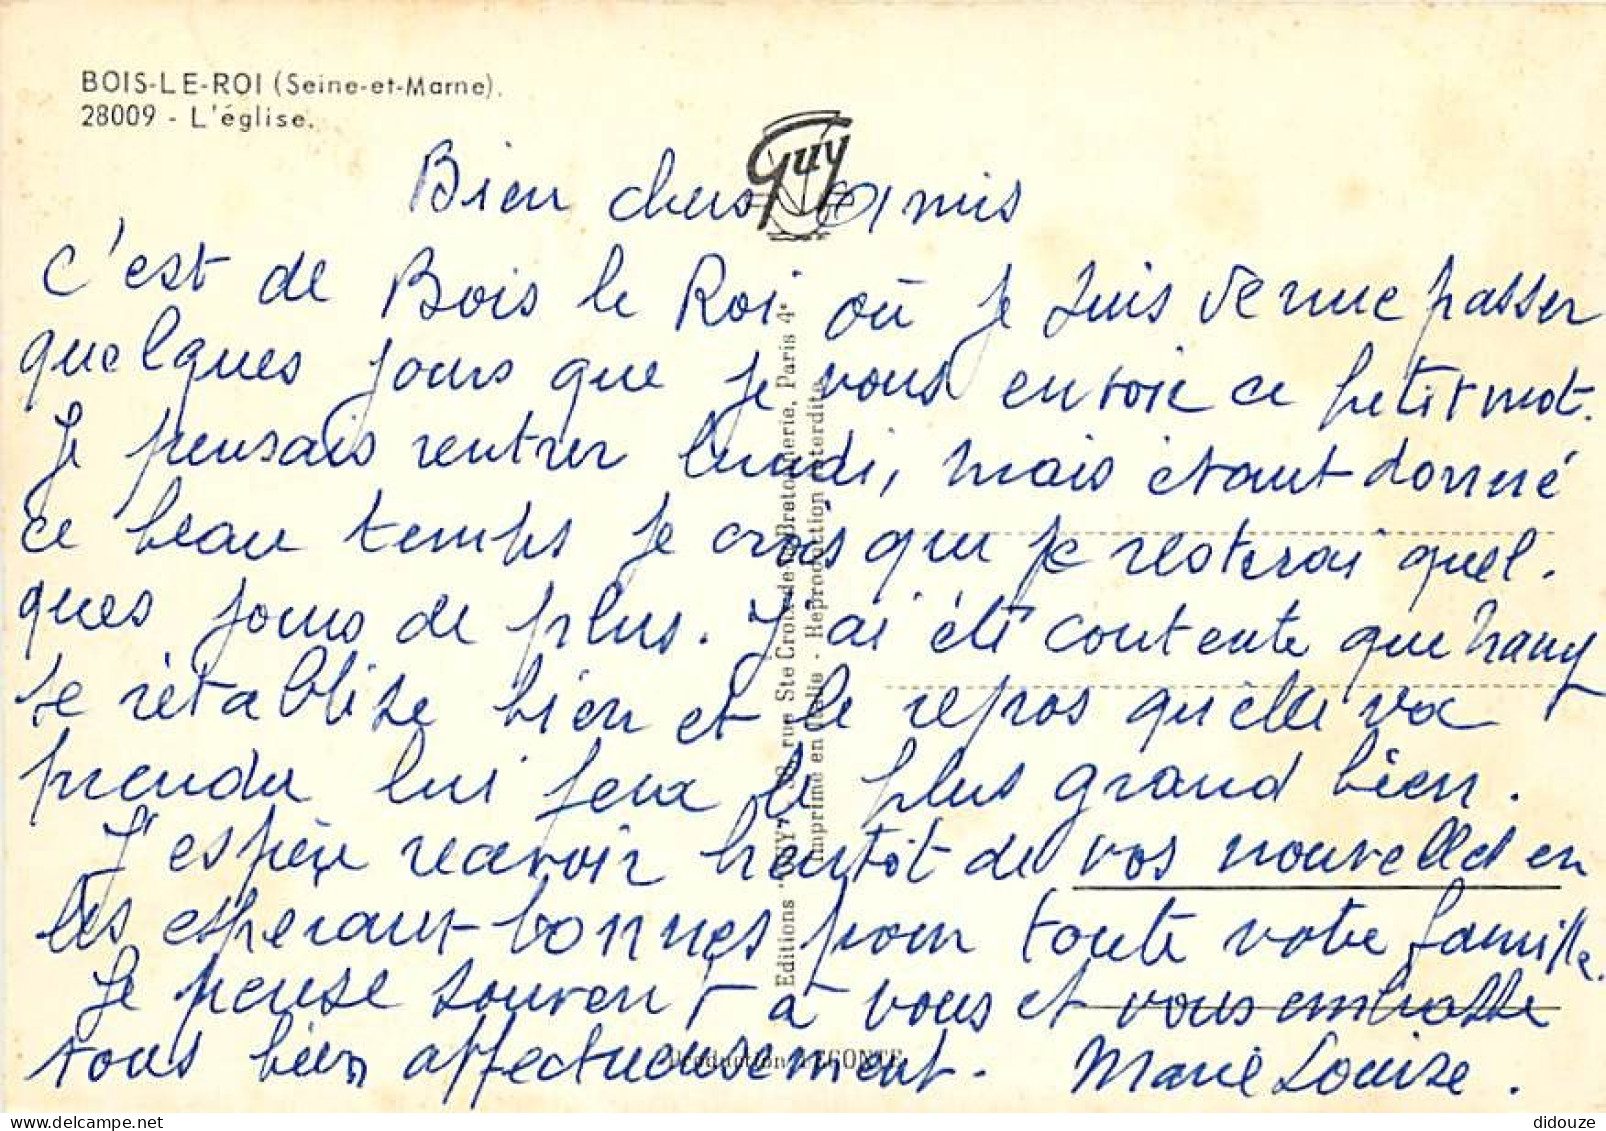 BOIS-LE-ROI (Seine-et-Marne).
28009 - L'église.
Guy
Bien chers amis
c'est de Bois le Roi où je suis venue passer
quelques jours que je vous envoie ce petit mot.
Je pensais rentrer lundi, mais étant donné
ce beau temps je crois que je resterai quel-
ques jours de plus. J'ai été contente que Nany
se rétablisse bien et le repos qu'elle va
prendre lui fera le plus grand bien.
J'espère recevoir bientôt de vos nouvelles en
les espérant bonnes pour toute votre famille.
Je pense souvent à vous et vous embrasse
tous bien affectueusement. Marie Louise.
Editions "GUY" rue Ste Croix de la Bretonnerie, Paris 4e
Imprimé en Italie - Reproduction interdite
Production LECONTE
didouze